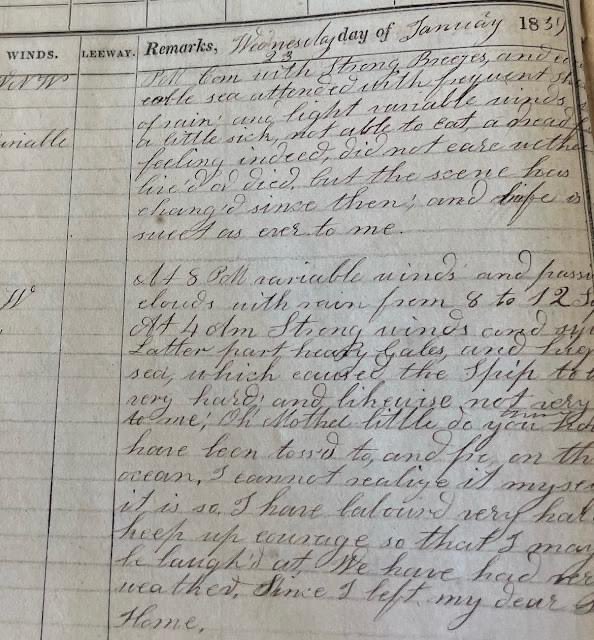 WINDS. LEEWAY. Remarks, Wednesday day of January 1839
23
PM Com with Strong Breezes, and
sea attended with frequent
of rain; and light variable winds,
a little sick, not able to eat, a dread
feeling indeed, did not care wether
live'd or died, but the scene has
chang'd since then; and life is
sweet as ever to me.
At 8 PM variable winds and passi
clouds with rain from 8 to 12
At 4 Am Strong winds and
Latter part heavy Gales, and
sea, which caused the Ship to
very hard; and likewise not very
to me; Oh Mother little do you
have been toss'd to, and fro, on th
ocean, I cannot realize it myse
it is so. I have labour'd very har
keep up courage so that I may
be laugh'd at, We have had ver
weather, Since I left my dear
Home.